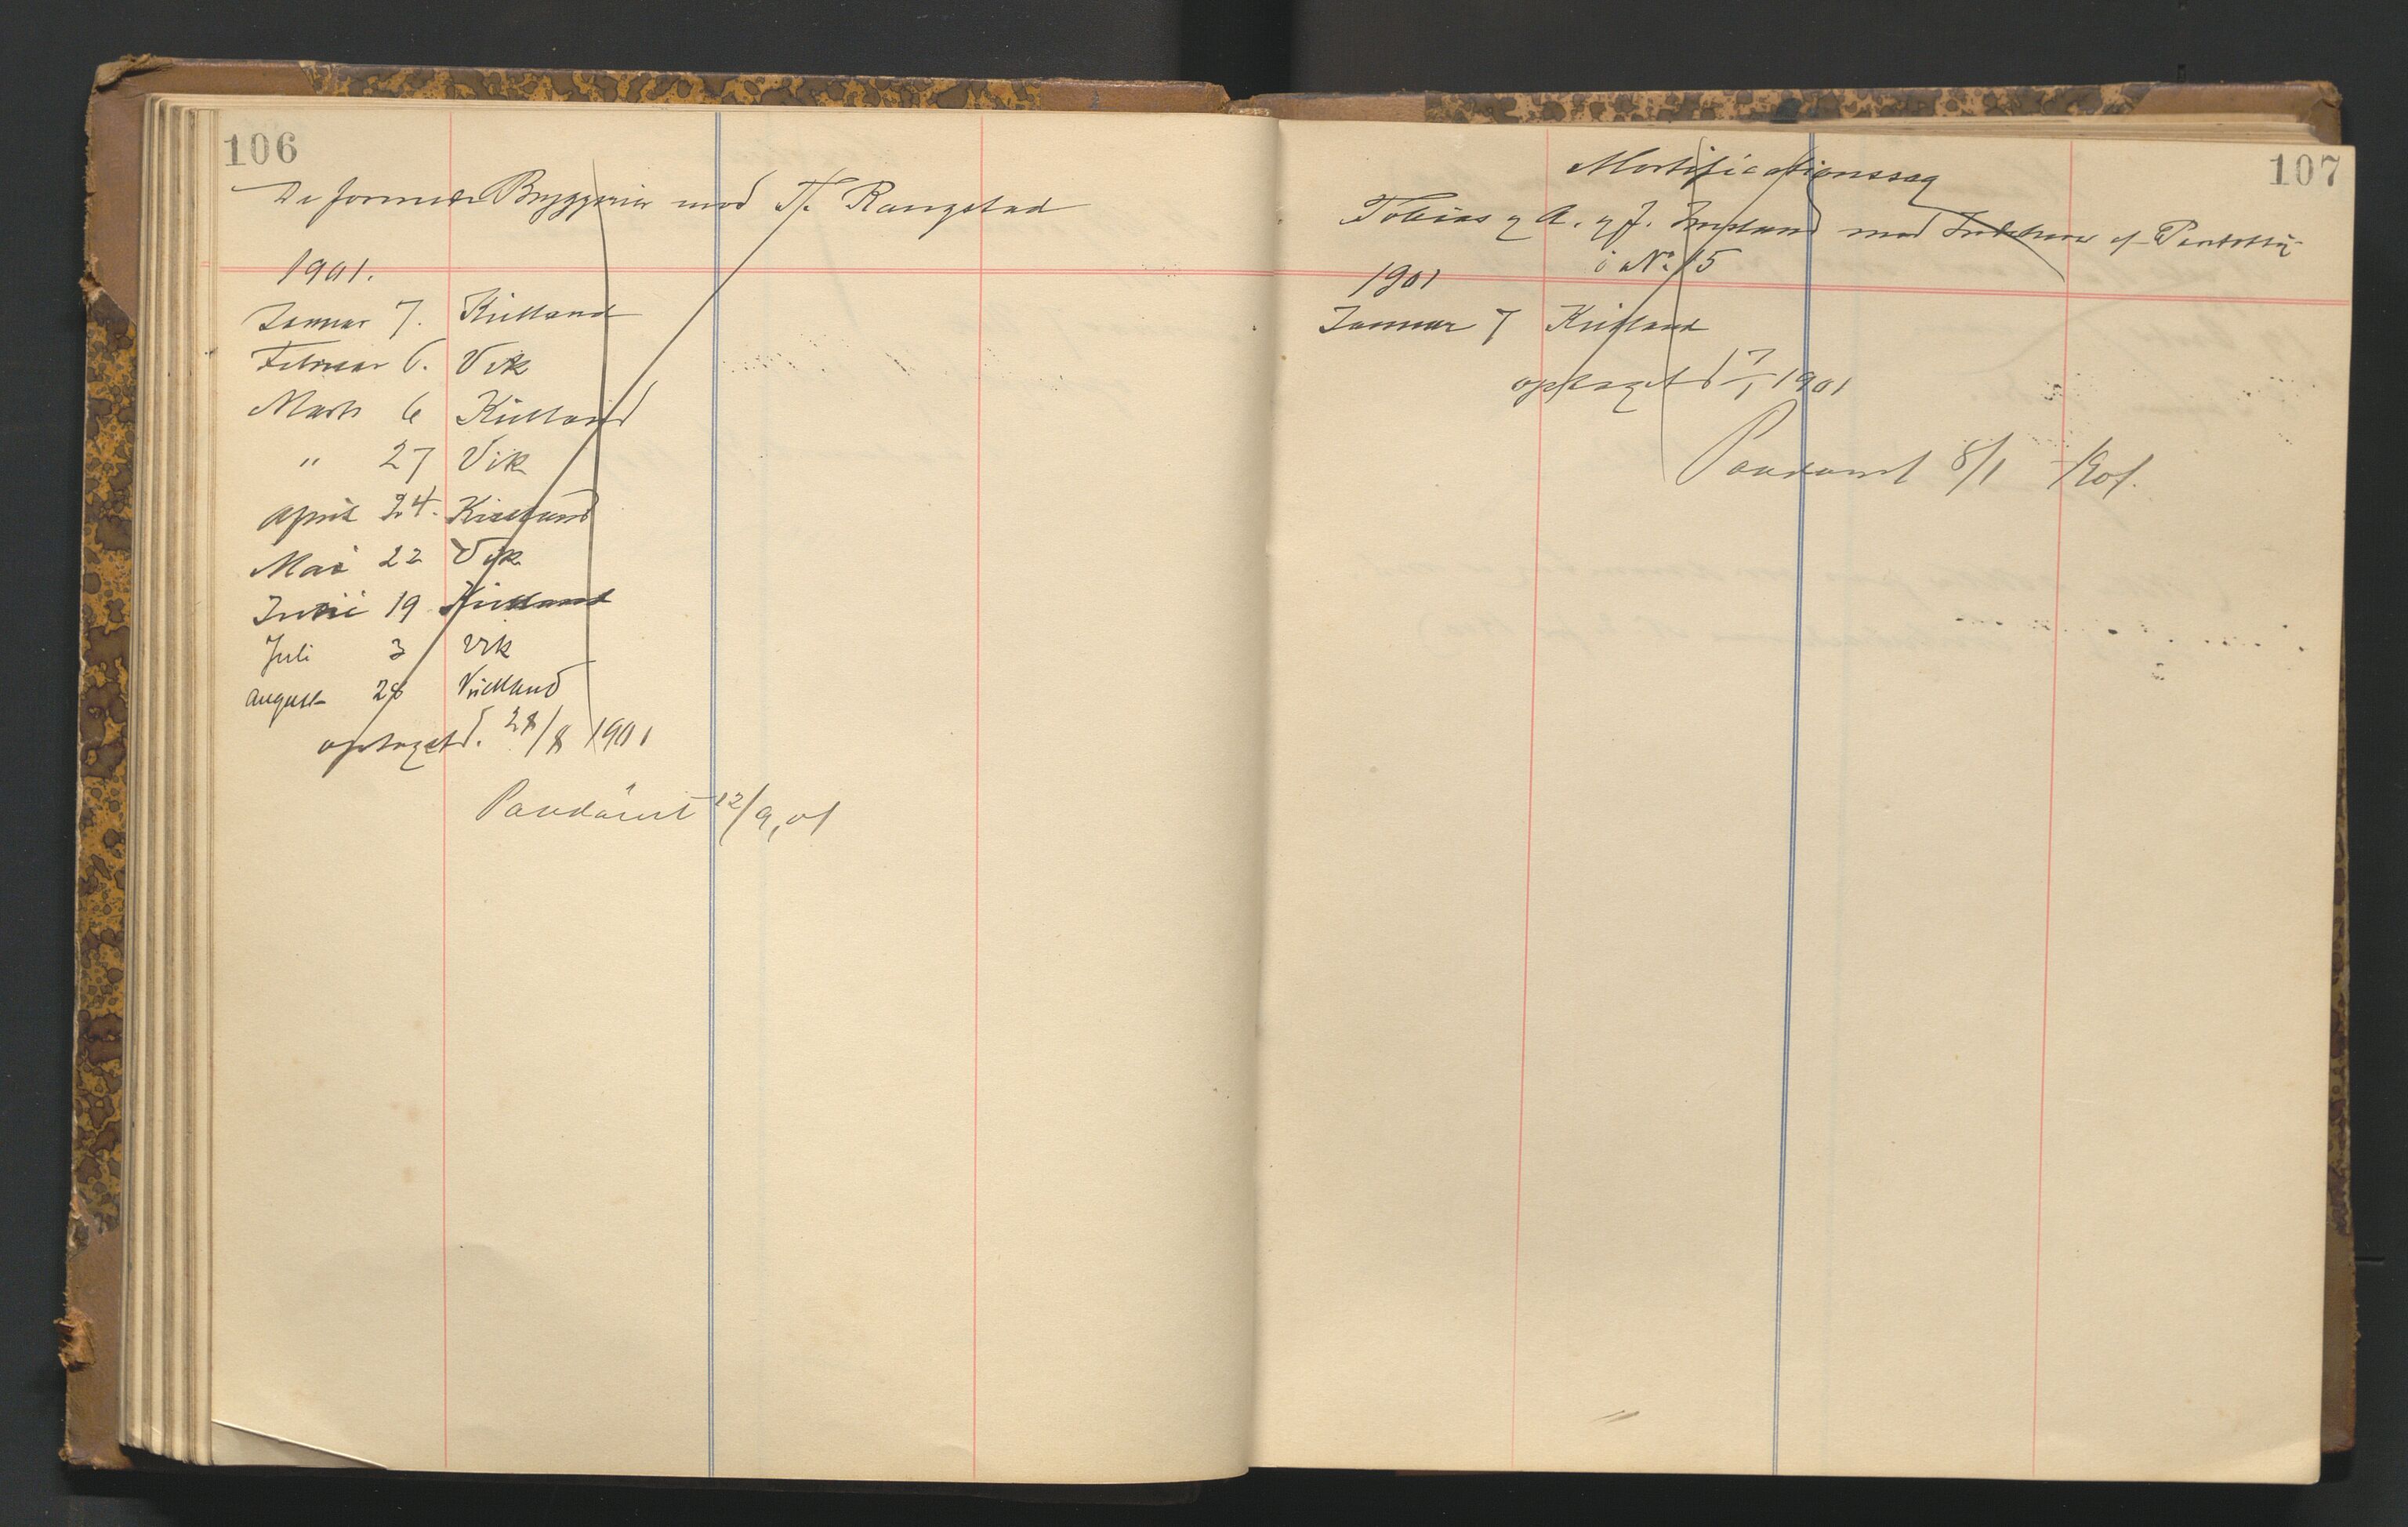 106
De forenede Bryggerier mod Th. Rangstad
1901.
Januar 7. Kielland
Februar 6. Vik
Marts 6 Kielland
" 27 Vik
April 24. Kielland
Mai 22 Vik
Juni 19 Kielland
Juli 3 Vik
August 28 Kielland
optaget d. 28/8 1901
Paadømt 12/9, 01
107
Mortificationssag
Tobias og A. og J. mod Indehaver af
i No. 15
1901
Januar 7 Kielland
optaget d 7/1 1901
Paadømt 8/1 1901.